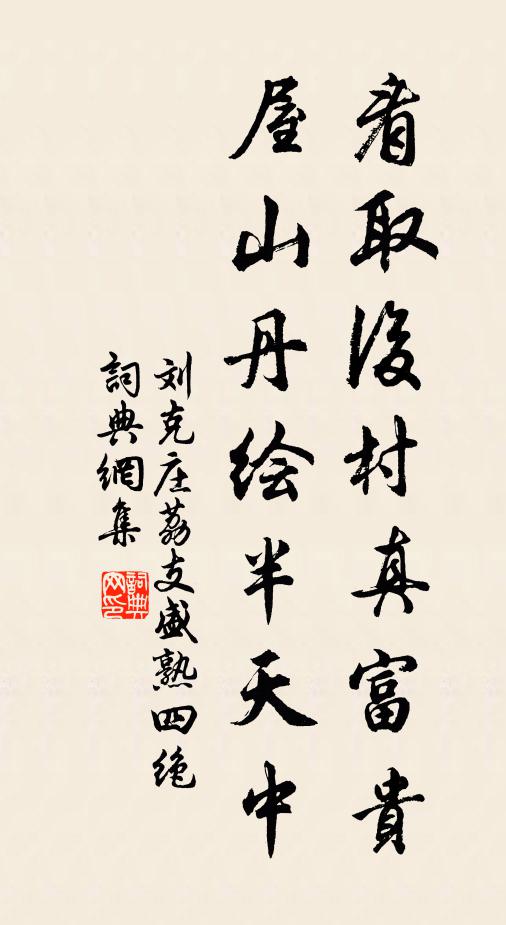 看取後村真富貴
屋山丹绘半天中
刘克庄荔支盛熟四絶
詞典網集
詞典网印